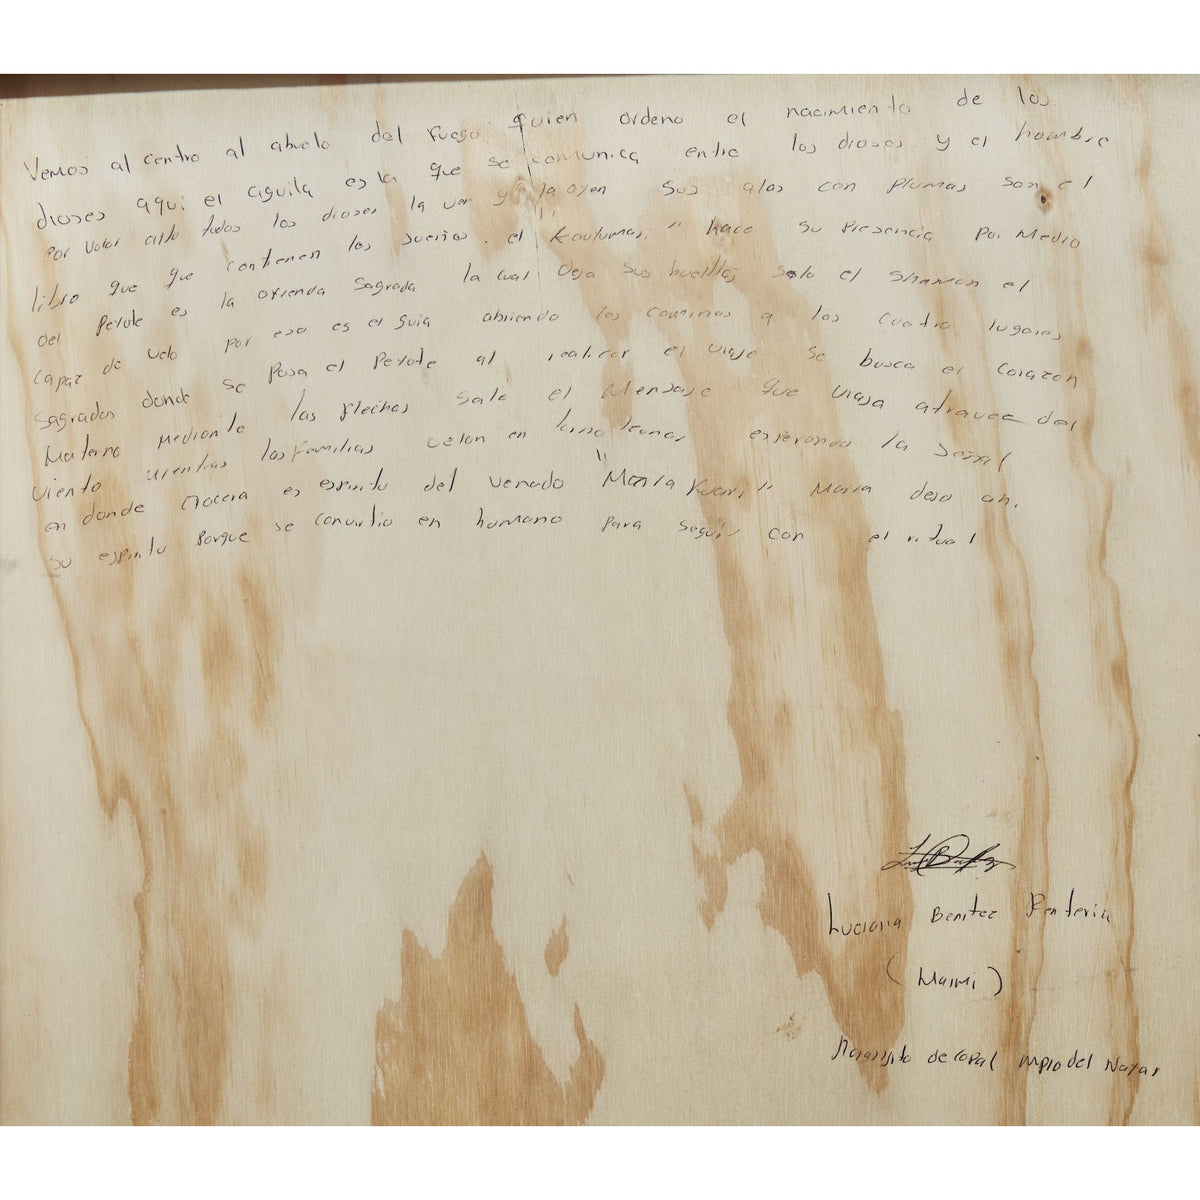 Vemos al centro al abuelo del fuego quien ordeno el nacimiento de los
dioses aqui el aguila es la que se comunica entre los dioses y el hombre
por volar alto todos los dioses la ven y la oyen sus alas con plumas son el
libro que que contienen los sueños. el "Kautumari" hace su presencia por medio
del peyote es la ofrenda sagrada la cual deja sus huellas solo el shaman el
capaz de velo por eso es el guia abriendo los caminos a los cuatro lugares
sagrados donde se posa el peyote al realizar el viaje se busca el corazon
materno mediante las flechas sale el mensaje que viaja atravee del
viento mientras las familias velan en esperando la señal
en donde es espiritu del venado "Marra Kwari" Marra dejo ahi
su espiritu porque se convirtio en humano para seguir con el ritual
Luciana Benitez Renteria
(Maimi)
Naranjito de Copal mpio del Nayar